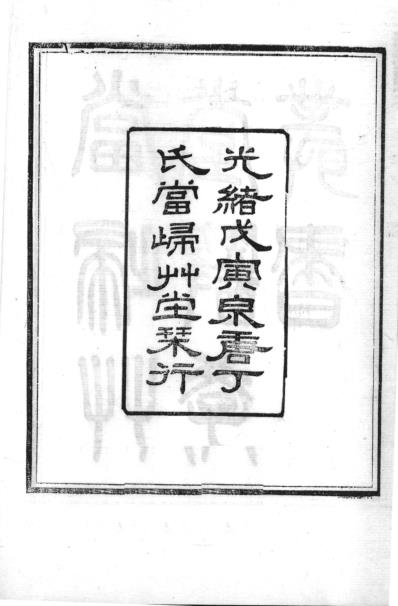 光緒戊寅泉唐丁
氏當歸艸堂栞行